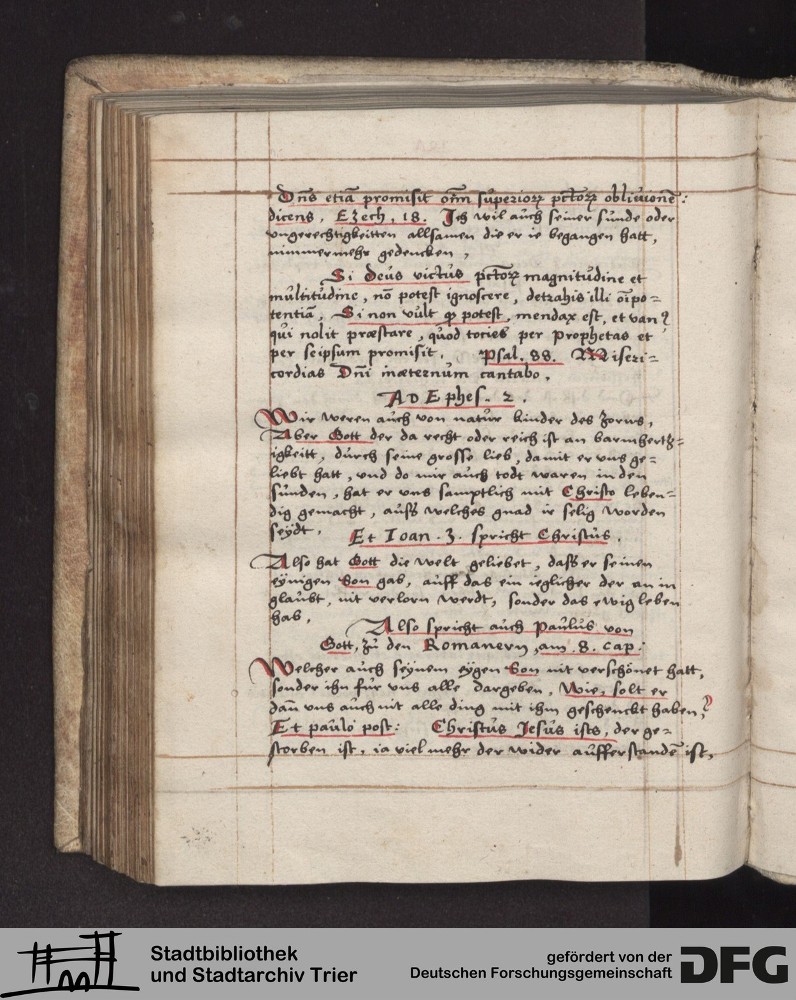 Dn̄s etiā promisit om̄m superiorꝝ pctōrꝝ obliuionē:
dicens, Ezech, 18. Ich wil auch seiner sunde oder
vngerechtigkeitten allsamen die er ie begangen hatt,
nimmermehr gedencken,
Si Deus victus pctōrꝝ magnitudine et
multitudine, nō potest ignoscere, detrahis illi oīpo=
tentiā, Si non vult qꝫ potest, mendax est, et van
qui nolit præstare, quod tories per prophetas et
per seipsum promisit. Psal. 88. Miseri=
cordias Dn̄i inæternum cantabo,
AD Ephes. 2.
Wir weren auch von natur kinder des zorns,
Aber Gott der da recht oder reich ist an barmhertz=
igkeitt, durch seine grosse lieb, damit er vns ge=
liebt hatt, vnd do mir auch todt waren in den
sunden, hat er vns samptlich mit Christo leben=
dig gemacht, auss welches gnad ir selig worden
seÿdt, Et Ioan. 3. spricht Christus.
Also hat Gott die welt geliebet, dass er seinen
eÿnigen Son gab, auff das ein ieglicher der an in
glaubt, nit verlorn werdt, sonder das ewig leben
hab, Also spricht auch Paulus von
Gott, zu den Romanern, am. 8. cap:
Welcher auch seÿnem eÿgen Son nit verschönet hatt,
sonder ihn fur vns alle dargeben, Wie, solt er
dan̄ vns auch nit alle ding mit ihm geschenckt haben?
Et paulo post: Christus Jesus ists, der ge=
storben ist, ia viel mehr der wider aufferstandē ist,
Stadtbibliothek
und Stadtarchiv Trier
gefördert von der
Deutschen Forschungsgemeinschaft
DFG